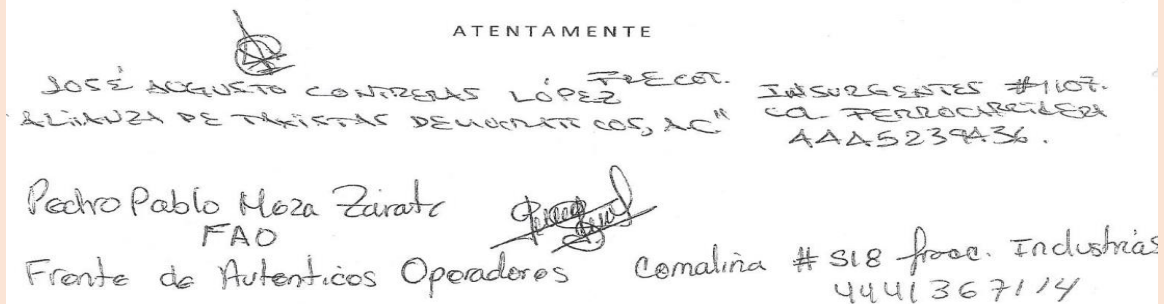 ATENTAMENTE
JOSÉ AUGUSTO CONTRERAS LÓPEZ
INSURGENTES #1107.
ALIANZA DE TAXISTAS DEMOCRATICOS, AC"
COL FERROCARRILERA
4445239436.
Pedro Pablo Meza Zarate
FAO
Frente de Autenticos Operadores
Comalina # 518 fracc. Industrias
4441367114